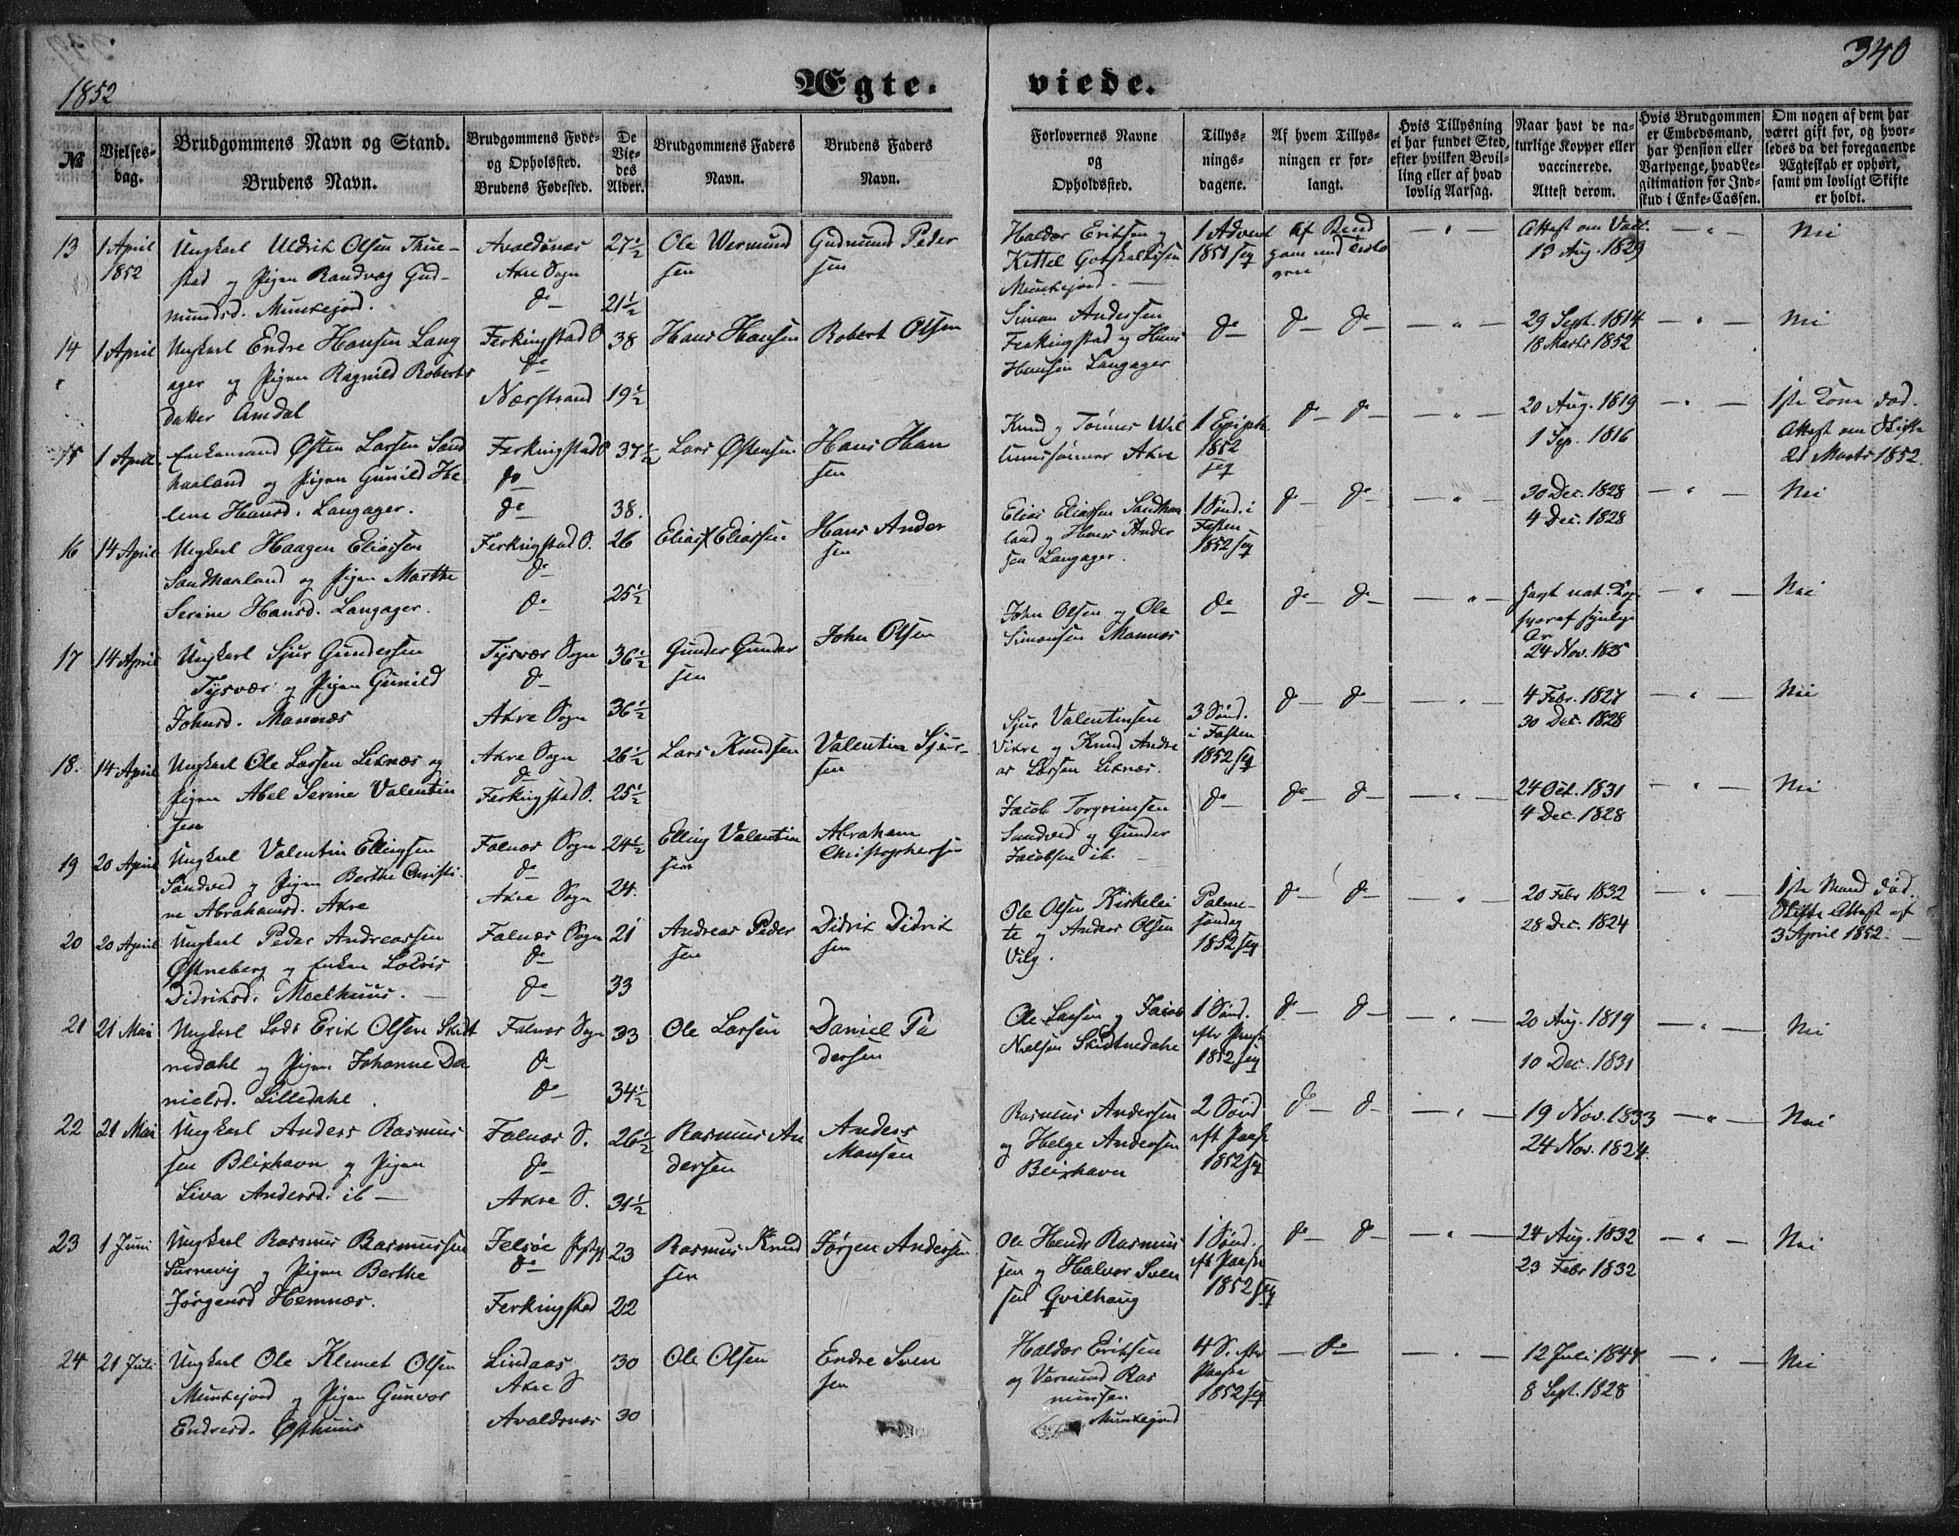 1852
Ægte-
viede.
340
No
Vielses-
dag.
Brudgommens Navn og Stand.
Brudens Navn.
Brudgommens Føde-
og Opholdssted.
Brudens Fødested.
De
Vie-
des
Alder.
Brudgommens Faders
Navn.
Brudens Faders
Navn.
Forlovernes Navne
og
Opholdssted.
Tillys-
nings-
dagene.
Af hvem Tillys-
ningen er for-
langt.
Hvis Tillysning
ei har fundet Sted,
efter hvilken Bevil-
ling eller af hvad
lovlig Aarsag.
Naar havt de na-
turlige Kopper eller
vaccinerede.
Attest derom.
Hvis Brudgommen
er Embedsmand,
har Pension eller
Vartpenge, hvad Le-
gitimation for Ind-
skud i Enke-Cassen.
Om nogen af dem har
været gift før, og hvor-
ledes da det foregaaende
Ægteskab er ophørt,
samt om lovligt Skifte
er holdt.
13
1 April
1852
Ungkarl Uldrik Olsen Thue-
stad og Pigen Randvæg Gud-
mundsd. Munkejord.
Avaldsnæs
Akre Sogn
do
27½
21½
Ole Wermund
sen
Gudmund Peder
sen
Haldor Eriksen og
Kittel Gotskalksen
Munkejord.
1 Advent
1851 seq
Af Brud
gommen
Attest om Vacc.
13 Aug. 1829
Nei
14
1 April
Ungkarl Endre Hansen Lang
ager og Pigen Ragnild Roberts
datter Amdal
Ferkingstad S
do
Nærstrand
38
19½
Hans Hansen
Robert Olsen
Simon Andersen
Ferkingstad og Hans
Hansen Langager
do
do do
29 Sept. 1814
18 Marts 1852
Nei
15
1 April
Enkemand Østen Larsen Sand
haaland og Pigen Gunild He-
lene Hansd. Langager.
Ferkingstad S
do
do
37½
38.
Lars Østensen
Hans Han
sen
Knud og Tønnes Wil
lumsønner Akre
1 Epiph.
1852
seq
do do
20 Aug. 1819
1 Sep. 1816
1ste Kone død.
Attest om Skifte
21 Marts 1852.
16
14 April
Ungkarl Haagen Eliassen
Sandhaaland og Pigen Marthe
Serine Hansd. Langager.
Ferkingstad S.
do
do
26
25½
Elias Eliassen
Hans Ander
sen
Elias Eliassen Sandhaa
land og Hans Ander
sen Langager.
1 Sønd. i
Fasten
1852 seq
do do
30 Dec. 1828
4 Dec. 1828
Nei
17
14 April
Ungkarl Sjur Gundersen
Tysvær og Pigen Gunild
Johnsd. Mannæs
Tysvær Sogn
do
Akre Sogn
36½
36½
Gunder Gunder
sen
John Olsen
John Olsen og Ole
Simonsen Mannæs
do
do do
havt nat. Kop
hvoraf synlige
Ar
24 Nov. 1825
Nei
18.
14 April
Ungkarl Ole Larsen Liknæs og
Pigen Abel Serine Valentin
sen
Akre Sogn
do
Ferkingstad S.
26½
25½
Lars Knudsen
Valentin Sjur-
sen
Sjur Valentinsen
Vikre og Knud Andre
as Larsen Liknæs.
3 Sønd.
i Fasten
1852 seq
do do
4 Febr. 1827
30 Dec. 1828
Nei
19
20 April
Ungkarl Valentin Ellingsen
Sandved og Pigen Berthe Christi-
ne Abrahamsd. Akre
Falnæs Sogn
do
Akre Sogn
24½
24.
Elling Valentin
sen
Abraham
Christophersen
Jacob Torgrimsen
Sandved og Gunder
Jacobsen ib.
do
do do
24 Oct. 1831
4 Dec. 1828
Nei
20
20 April
Ungkarl Peder Andreassen
Østneberg og Enken Lovis
Didriksd. Moelhuus.
Falnæs Sogn
do
do
21
33
Andreas Peder
sen
Didrik Didrik
sen
Ole Olsen Kirkelei
te og Anders Olsen
Vilg.
Palme-
søndag
1852 seq
do do
20 Febr 1832
28 Dec. 1824
1ste Mand død
Skifte Attest af
3 April 1852.
21
21 Mai
Ungkarl Lods Erik Olsen Skidt
nedahl og Pigen Johanne Da
nielsd. Lilledahl.
Falnæs Sogn
do
do
33
34½
Ole Larsen
Daniel Pe
dersen
Ole Larsen og Jacob
Nielsen Skidtnedahl
1 Sønd.
eftr Paaske
1852 seq
do do
20 Aug. 1819
10 Dec. 1831
Nei
22
21 Mai
Ungkarl Anders Rasmus
sen Blixhavn og Pigen
Liva Andersd. ib
Falnæs S.
do
Akre S.
26½
31½
Rasmus An
dersen
Anders
Monsen
Rasmus Andersen
og Helge Andersen
Blixhavn
2 Sønd
eft Paaske
1852 seq
do do
19 Nov. 1833
24 Nov. 1824.
Nei
23
1 Juni
Ungkarl Rasmus Rasmussen
og Pigen Berthe
Jørgensd Hemnæs.
do
Ferkingstad
23
22
Rasmus Knud
sen
Jørgen Andersen
Ole Hendr Rasmus
sen og Halvor Sven
sen Qvilhaug
1 Sønd.
eft Paaske
1852 seq
do do
24 Aug. 1832
23 Febr 1832
Nei
24
21 Juli
Ungkarl Ole Klemet Olsen
Munkejord og Pigen Gunvor
Endresd. Østhuus
Lindaas
Akre S
Avaldsnæs
30
30
Ole Olsen
Endre Sven
sen
Haldor Eriksen
og Vermund Ras
mussen
Munkejord
4 S. eftr
Paaske
1852 seq
do
12 Juli 1844
8 Sept. 1828
Nei